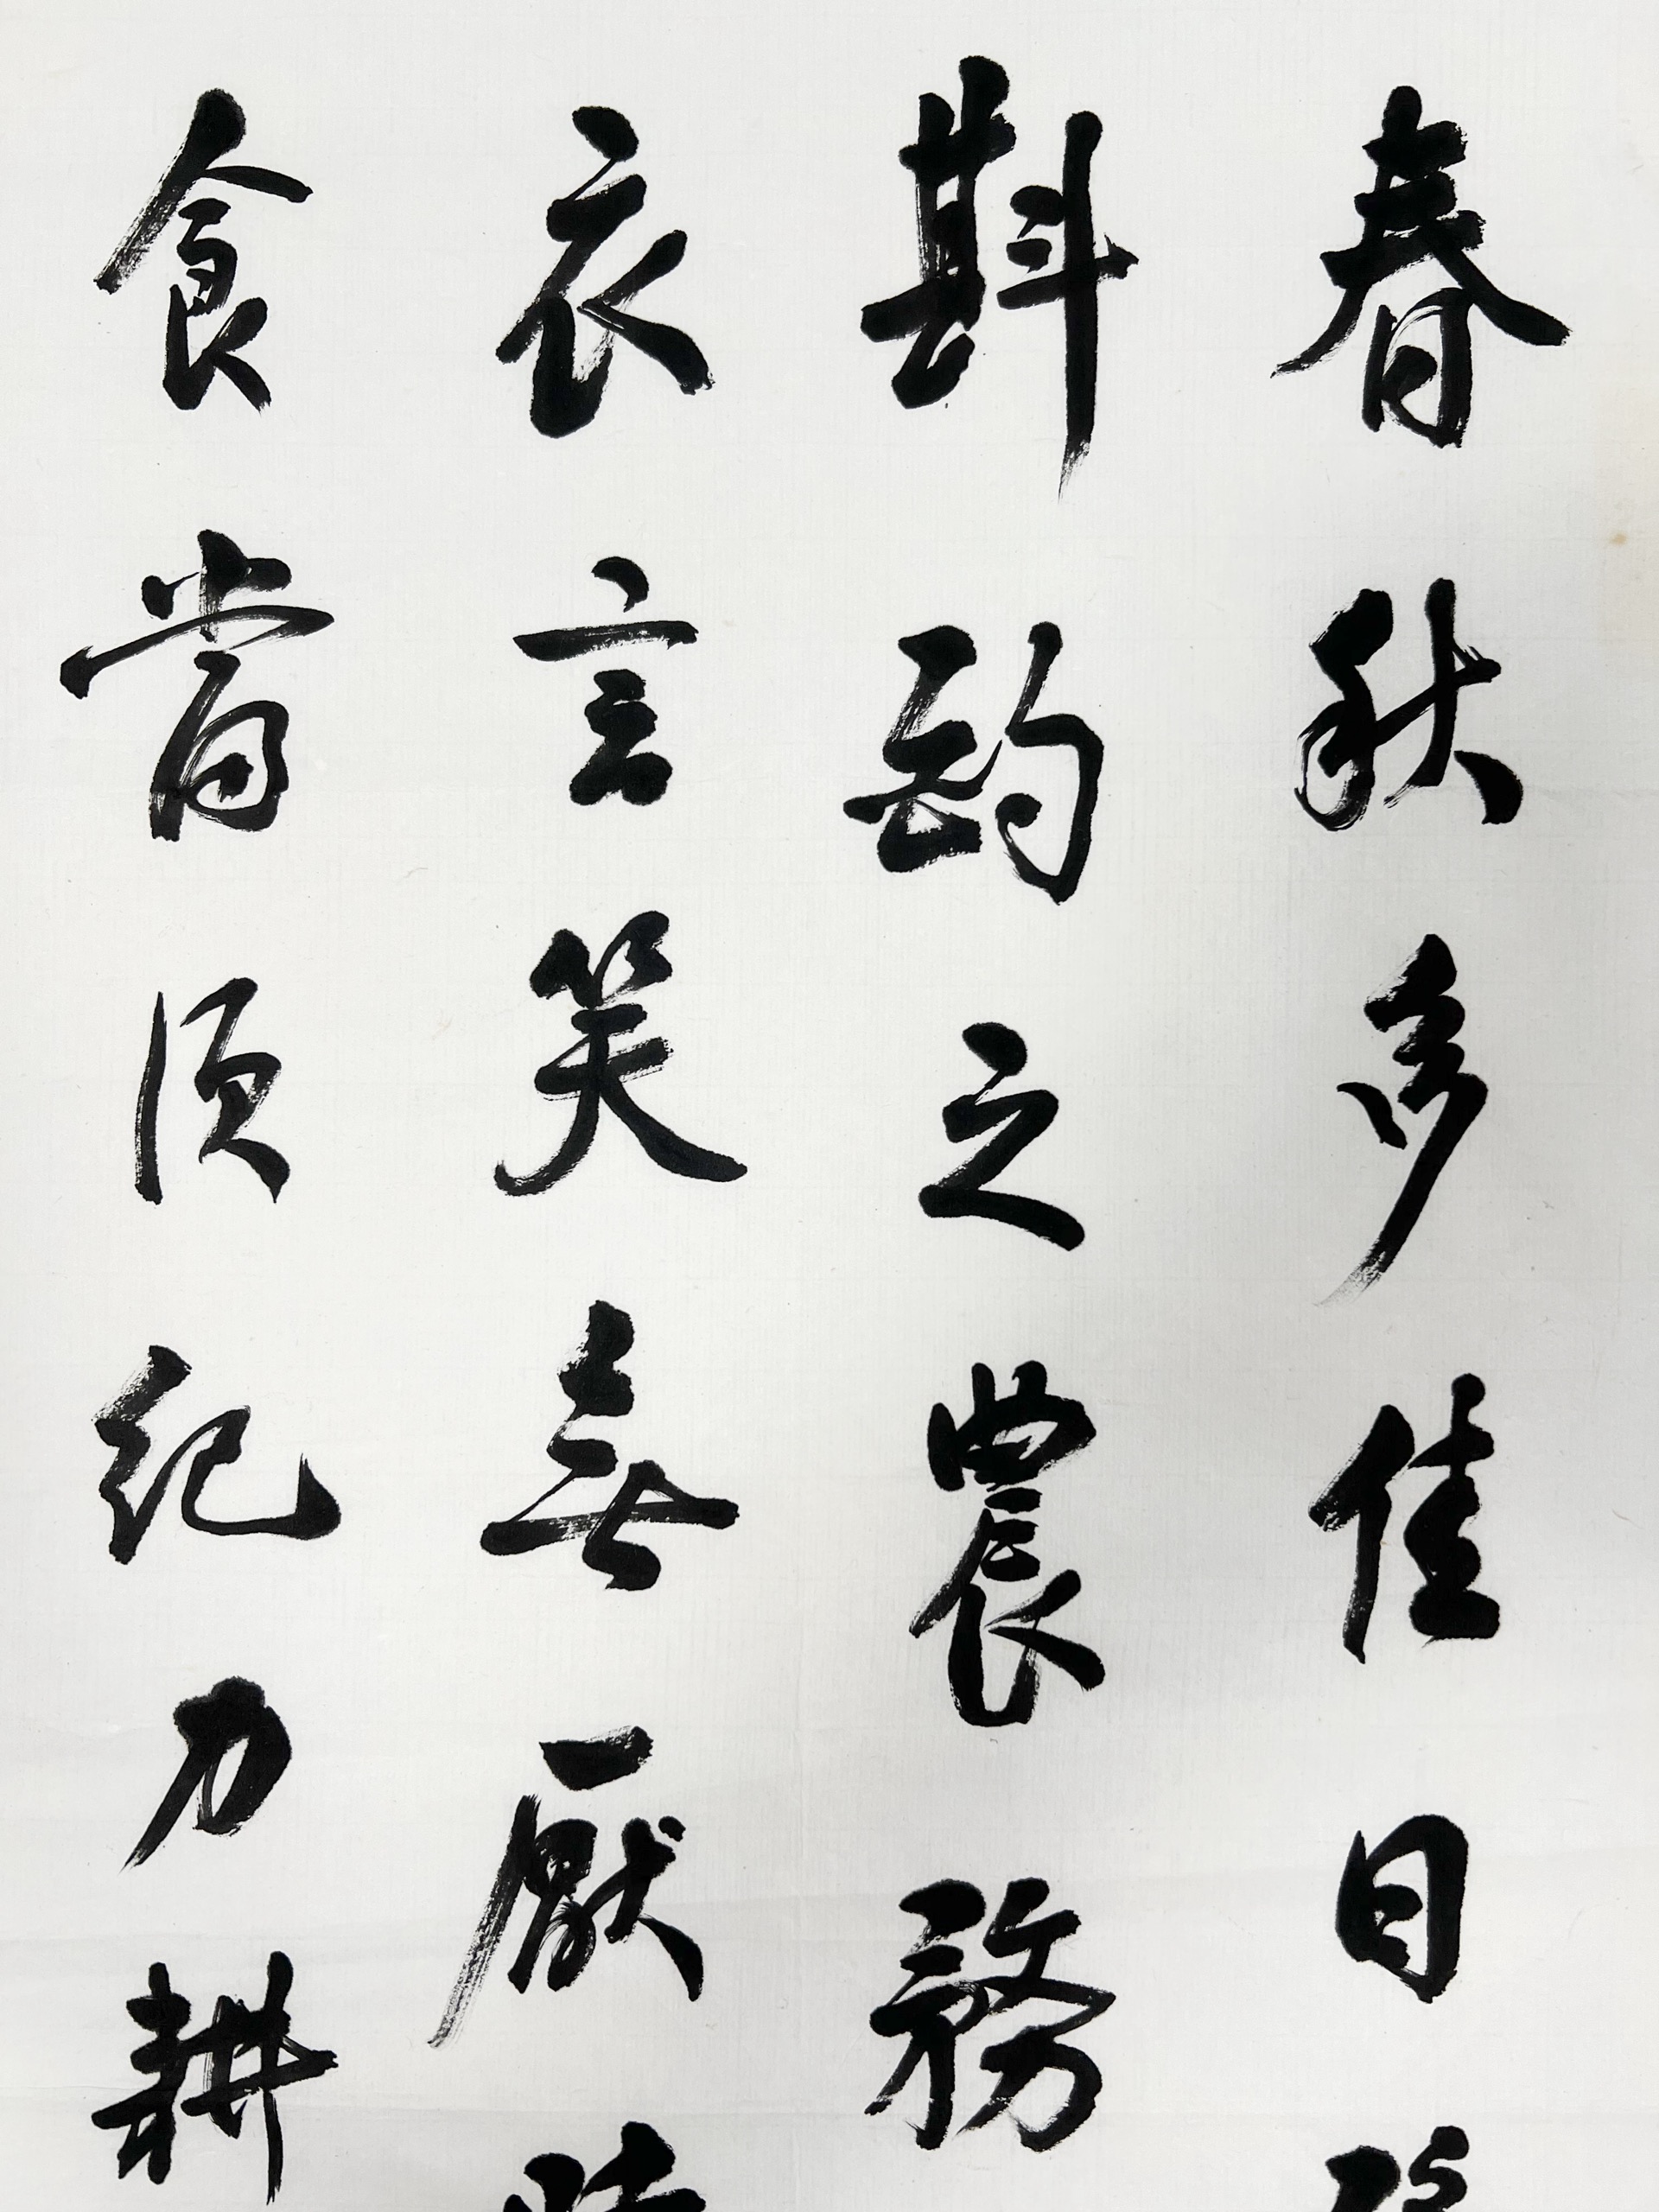 春秋多佳日
斟酌之農務
衣言笑無厭
食當須紀力耕